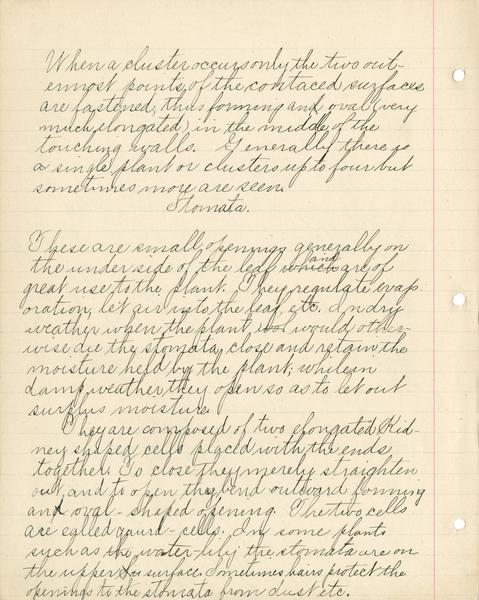 When a cluster occurs only the two out-
ermost points of the contaced surfaces
are fastened, thus forming and oval (very
much elongated) in the middle of the
touching walls. Generally there is
a single plant or clusters up to four but
sometimes more are seen.
Stomata.
These are small openings generally on
the under side of the leaf which and are of
great use to the plant. They regulate evap-
oration, let air into the leaf, etc. In dry
weather when the plant would other-
wise die the stomata close and retain the
moisture held by the plant; while in
damp weather they open so as to let out
surplus moisture.
They are composed of two elongated Kid-
ney shaped cells placed with the ends
together. To close they merely straighten
out, and to open they bend outward forming
and oval-shaped opening. The two cells
are called gaurd-cells. In some plants
such as the water-lily the stomata are on
the upper surface. Sometimes hairs protect the
openings to the stomata from dust etc.